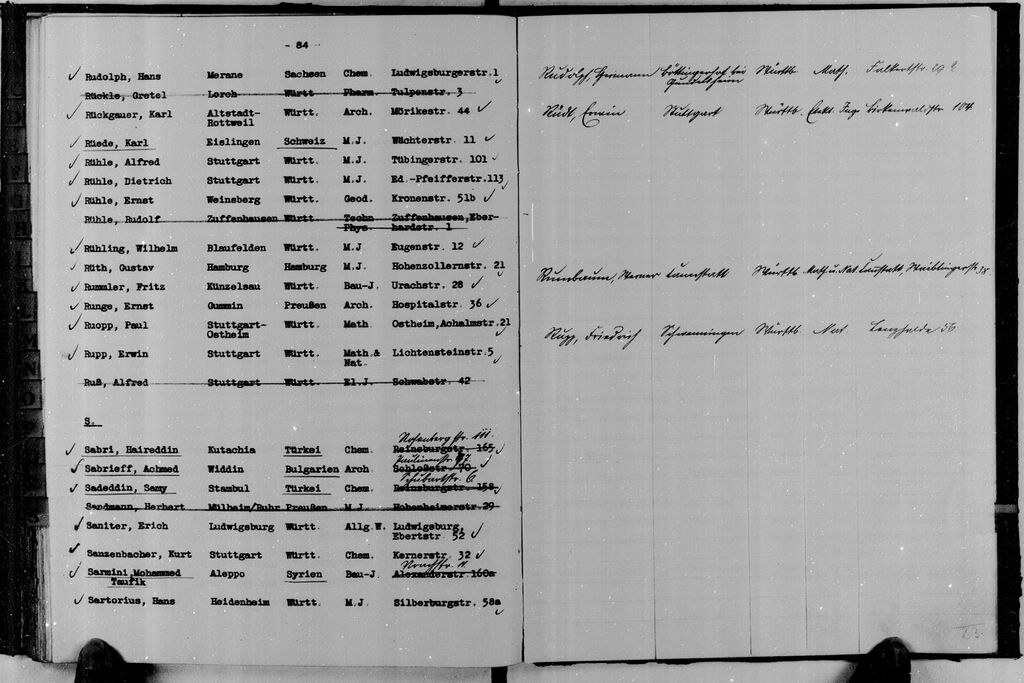 - 84 -
Rudolph, Hans Merane Sachsen Chem. Ludwigsburgerstr.1
Rückle, Gretel Lorch Württ Pharm. Tulpenstr. 3
Rückgauer, Karl Altstadt- Württ. Arch. Mörikestr. 44
Rottweil
Rüede, Karl Eislingen Schweiz M.J. Wächterstr. 11
Rühle, Alfred Stuttgart Württ. M.J. Tübingerstr. 101
Rühle, Dietrich Stuttgart Württ. M.J. Ed.-Pfeifferstr.113
Rühle, Ernst Weinsberg Württ. Geod. Kronenstr. 51b
Rühle, Rudolf Zuffenhausen Württ. Techn Zuffenhausen,Eber-
Phys. hardstr. 1
Rühling, Wilhelm Blaufelden Württ. M.J Eugenstr. 12
Rüth, Gustav Hamburg Hamburg M.J. Hohenzollernstr. 21
Rummler, Fritz Künzelsau Württ. Bau-J. Urachstr. 28
Runge, Ernst Gummin Preußen Arch. Hospitalstr. 36
Ruopp, Paul Stuttgart- Württ. Math. Ostheim,Achalmstr.21
Ostheim
Rupp, Erwin Stuttgart Württ. Math.& Lichtensteinstr.5
Nat.
Ruß, Alfred Stuttgart Württ. El.J. Schwabstr. 42
S.
Rosenbergstr. 111.
Sabri, Haireddin Kutachia Türkei Chem. Reinsburgstr. 165
Paulinenstr. 47.
Sabrieff, Achmed Widdin Bulgarien Arch. Schloßstr. 70
Schubartstr. 6
Sadeddin, Samy Stambul Türkei Chem. Reinsburgstr. 158
Sandmann, Herbert Mülheim/Ruhr Preußen M.J. Hohenheimerstr.29
Saniter, Erich Ludwigsburg Württ. Allg.W. Ludwigsburg,
Ebertstr. 52
Sanzenbacher, Kurt Stuttgart Württ. Chem. Kernerstr. 32
Sarmini,Mohammed Aleppo Syrien Bau-J. Alexanderstr.160a
Taufik
Sartorius, Hans Heidenheim Württ. M.J. Silberburgstr. 58a
Rudolph, Hermann Böttingerhof bei Württb. Math. Falkertstr. 29
Gundelsheim
Rüdt, Erwin Stuttgart Württb. Elekt. Ing. Birkenwaldstr 104.
Rumbaum, Werner Cannstatt Württb. Math. u. Nat. Cannstatt, Waiblingerstr. 38.
Rupp, Friedrich Schwenningen Württb. Nat. Lenzhalde 56